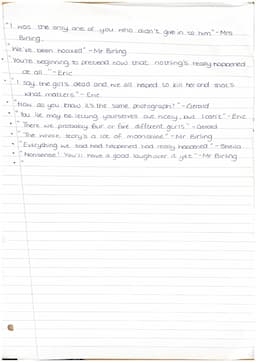 • "I was the only one of you who didn't give in to him" - Mrs
Birling
• "We've been hoaxed" - Mr Birling
• "You're beginning to pretend now that nothing's really happened
at all." - Eric
• "I say the girl's dead and we all helped to kill her and that's
what matters" - Eric
• "How do you know it's the same photograph?" - Gerald
• "You lie may be letting yourselves out nicely, but I can't" - Eric
• "There were probably four or five different girls" - Gerald
• "The whole story's a lot of moonshine" - Mr Birling
• "Everything we said had happened had really happened" - Sheila
• "Nonsense! You'll have a good laugh over it yet" - Mr Birling
• "